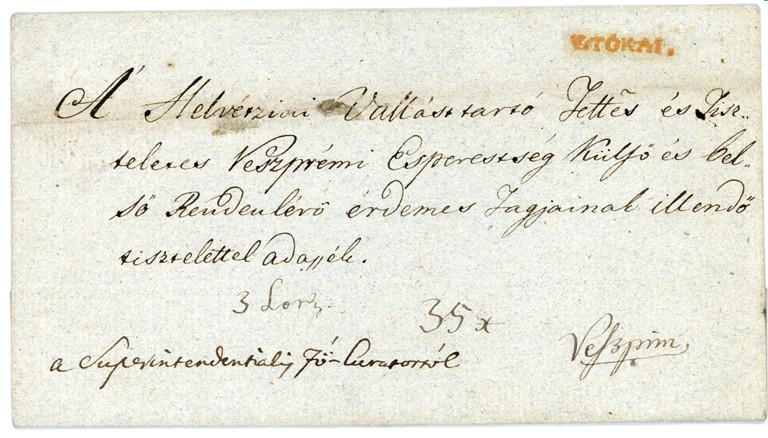 v.TÓKAI.
A' Helvétziai Vallást tartó Tettes és Tisz-
teletes Veszprémi Esperestség Külső és bel-
ső Rendenlévő érdemes Tagjainak illendő
tisztelettel adajjék.
3 Loth
35 x
Veszprim,
a Superintendentiális Fő-Curatortól